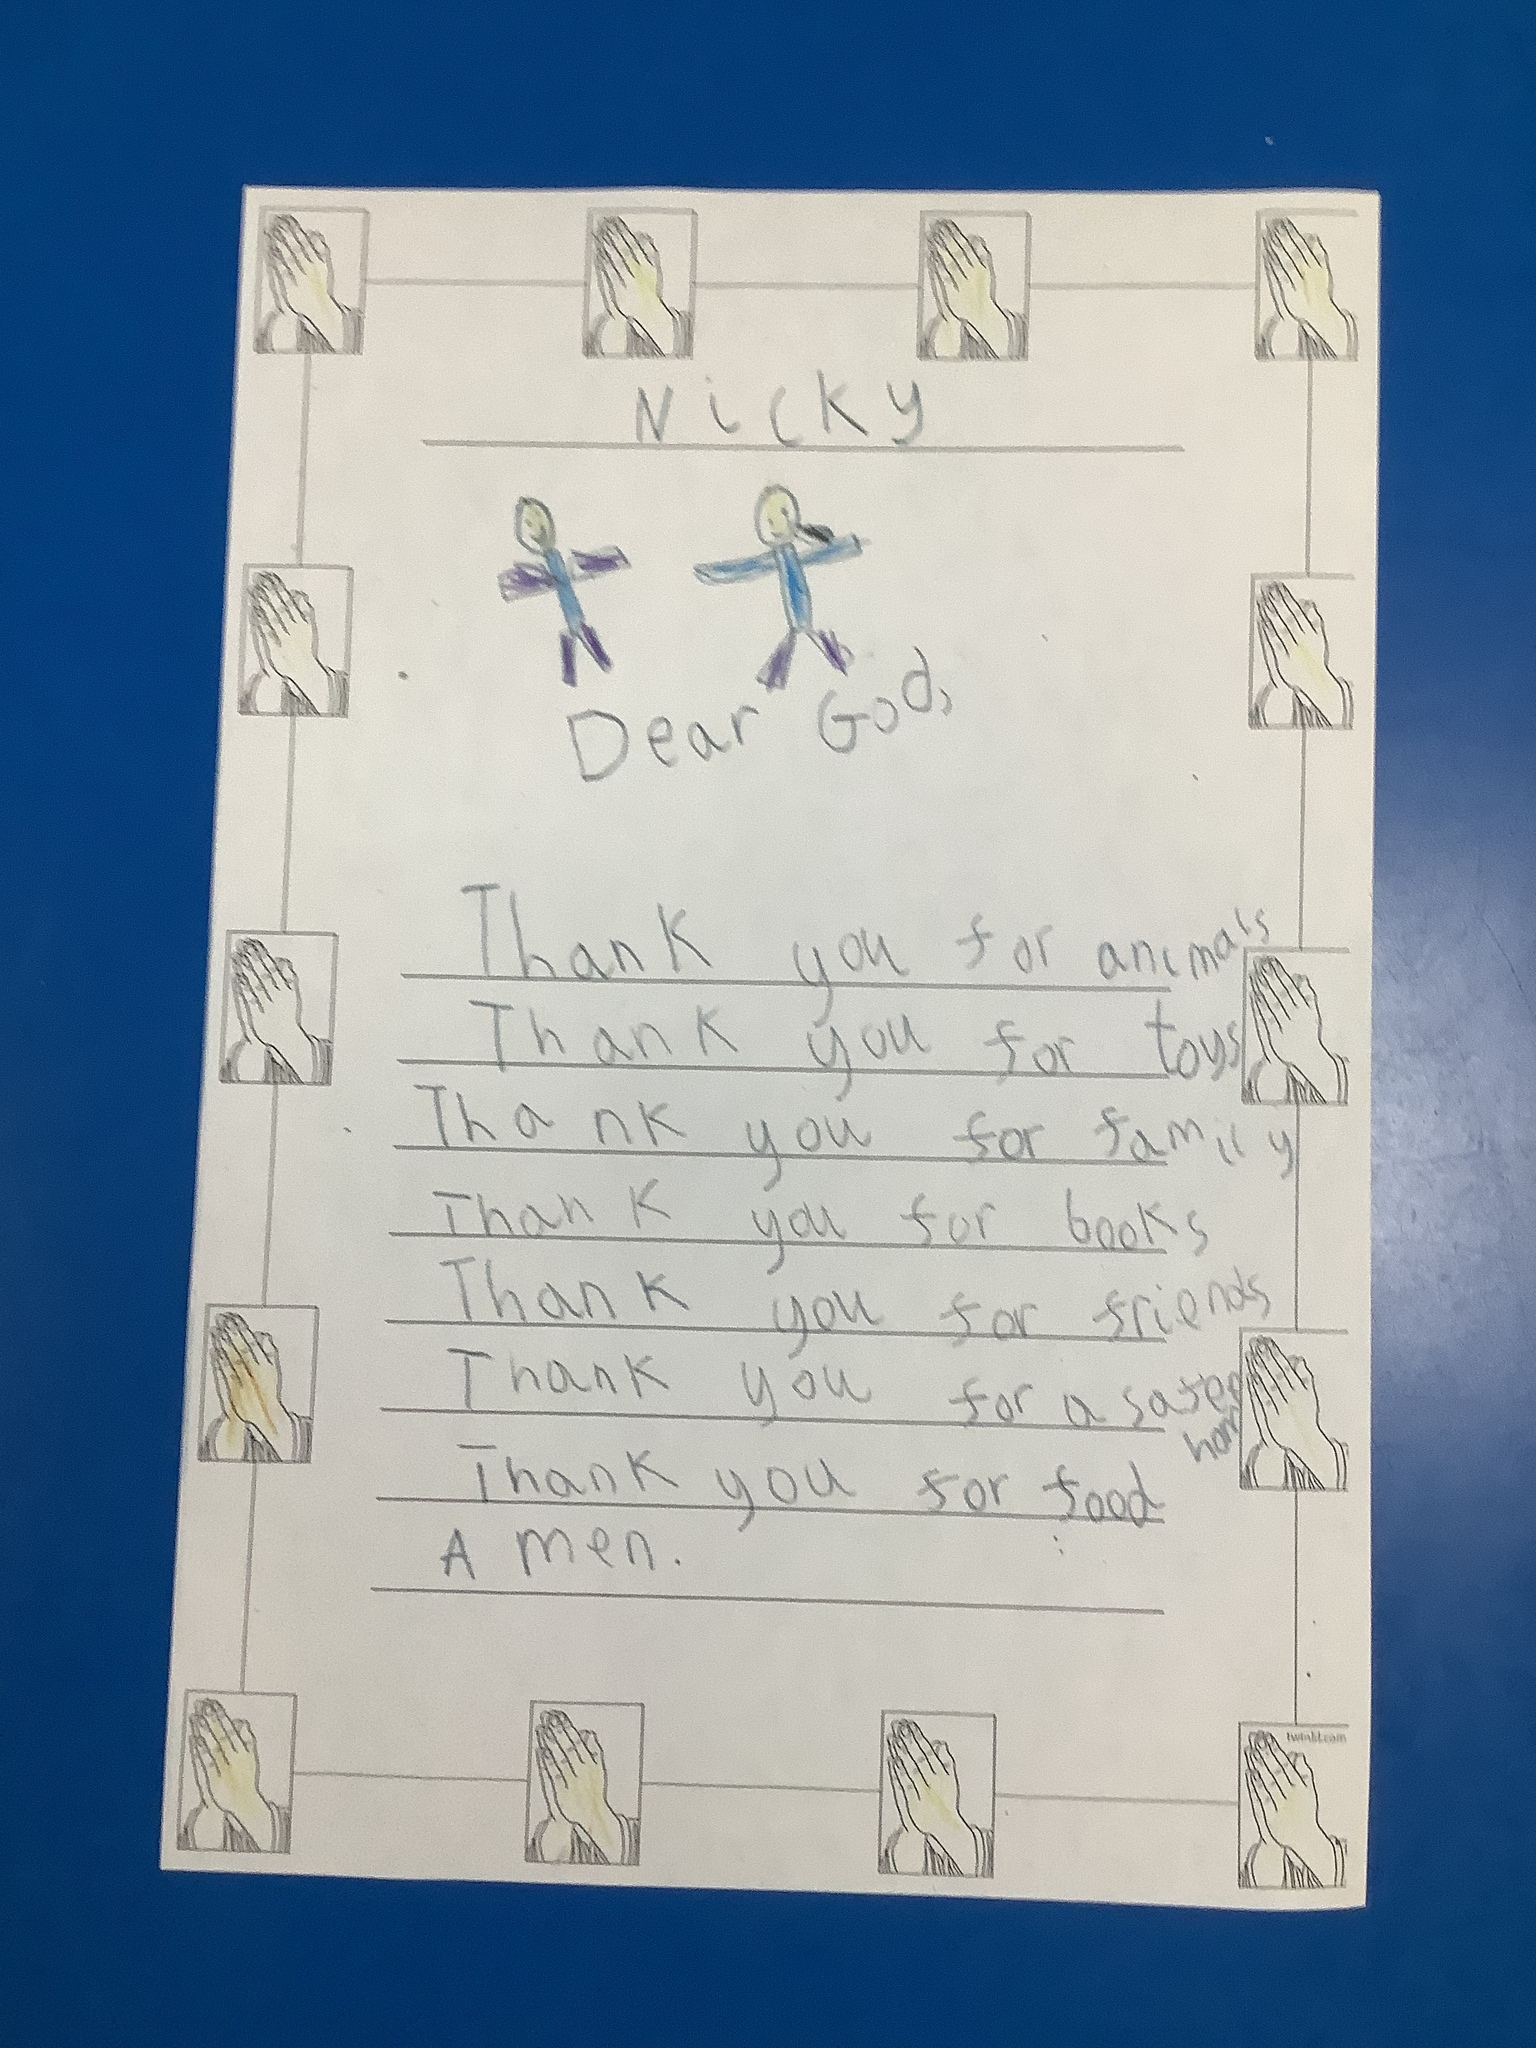 Nicky
Dear God,
Thank you for animals
Thank you for toys
Thank you for family
Thank you for books
Thank you for friends
Thank you for a safe
hom
Thank you for food
A men.
twinkl.com